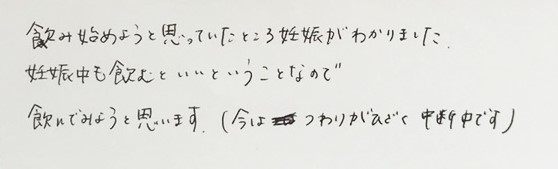 飲み始めようと思っていたところ妊娠がわかりました.
妊娠中も飲むといいということなので
飲んでみようと思います. (今は つわりがひどく 中断中です)